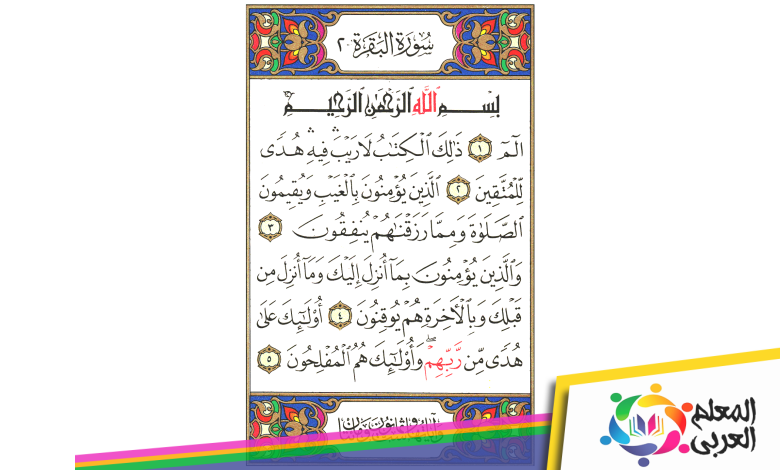 سُورَةُ الْبَقَرَةِ ٢
بِسْمِ ٱللَّهِ ٱلرَّحْمَٰنِ ٱلرَّحِيمِ
الٓمٓ ١ ذَٰلِكَ ٱلْكِتَٰبُ لَا رَيْبَ ۛ فِيهِ ۛ هُدًى
لِّلْمُتَّقِينَ ٢ ٱلَّذِينَ يُؤْمِنُونَ بِٱلْغَيْبِ وَيُقِيمُونَ
ٱلصَّلَوٰةَ وَمِمَّا رَزَقْنَٰهُمْ يُنفِقُونَ ٣
وَٱلَّذِينَ يُؤْمِنُونَ بِمَآ أُنزِلَ إِلَيْكَ وَمَآ أُنزِلَ مِن
قَبْلِكَ وَبِٱلْأَخِرَةِ هُمْ يُوقِنُونَ ٤ أُو۟لَٰٓئِكَ عَلَىٰ
هُدًى مِّن رَّبِّهِمْ ۖ وَأُو۟لَٰٓئِكَ هُمُ ٱلْمُفْلِحُونَ ٥
المعلم
العربي